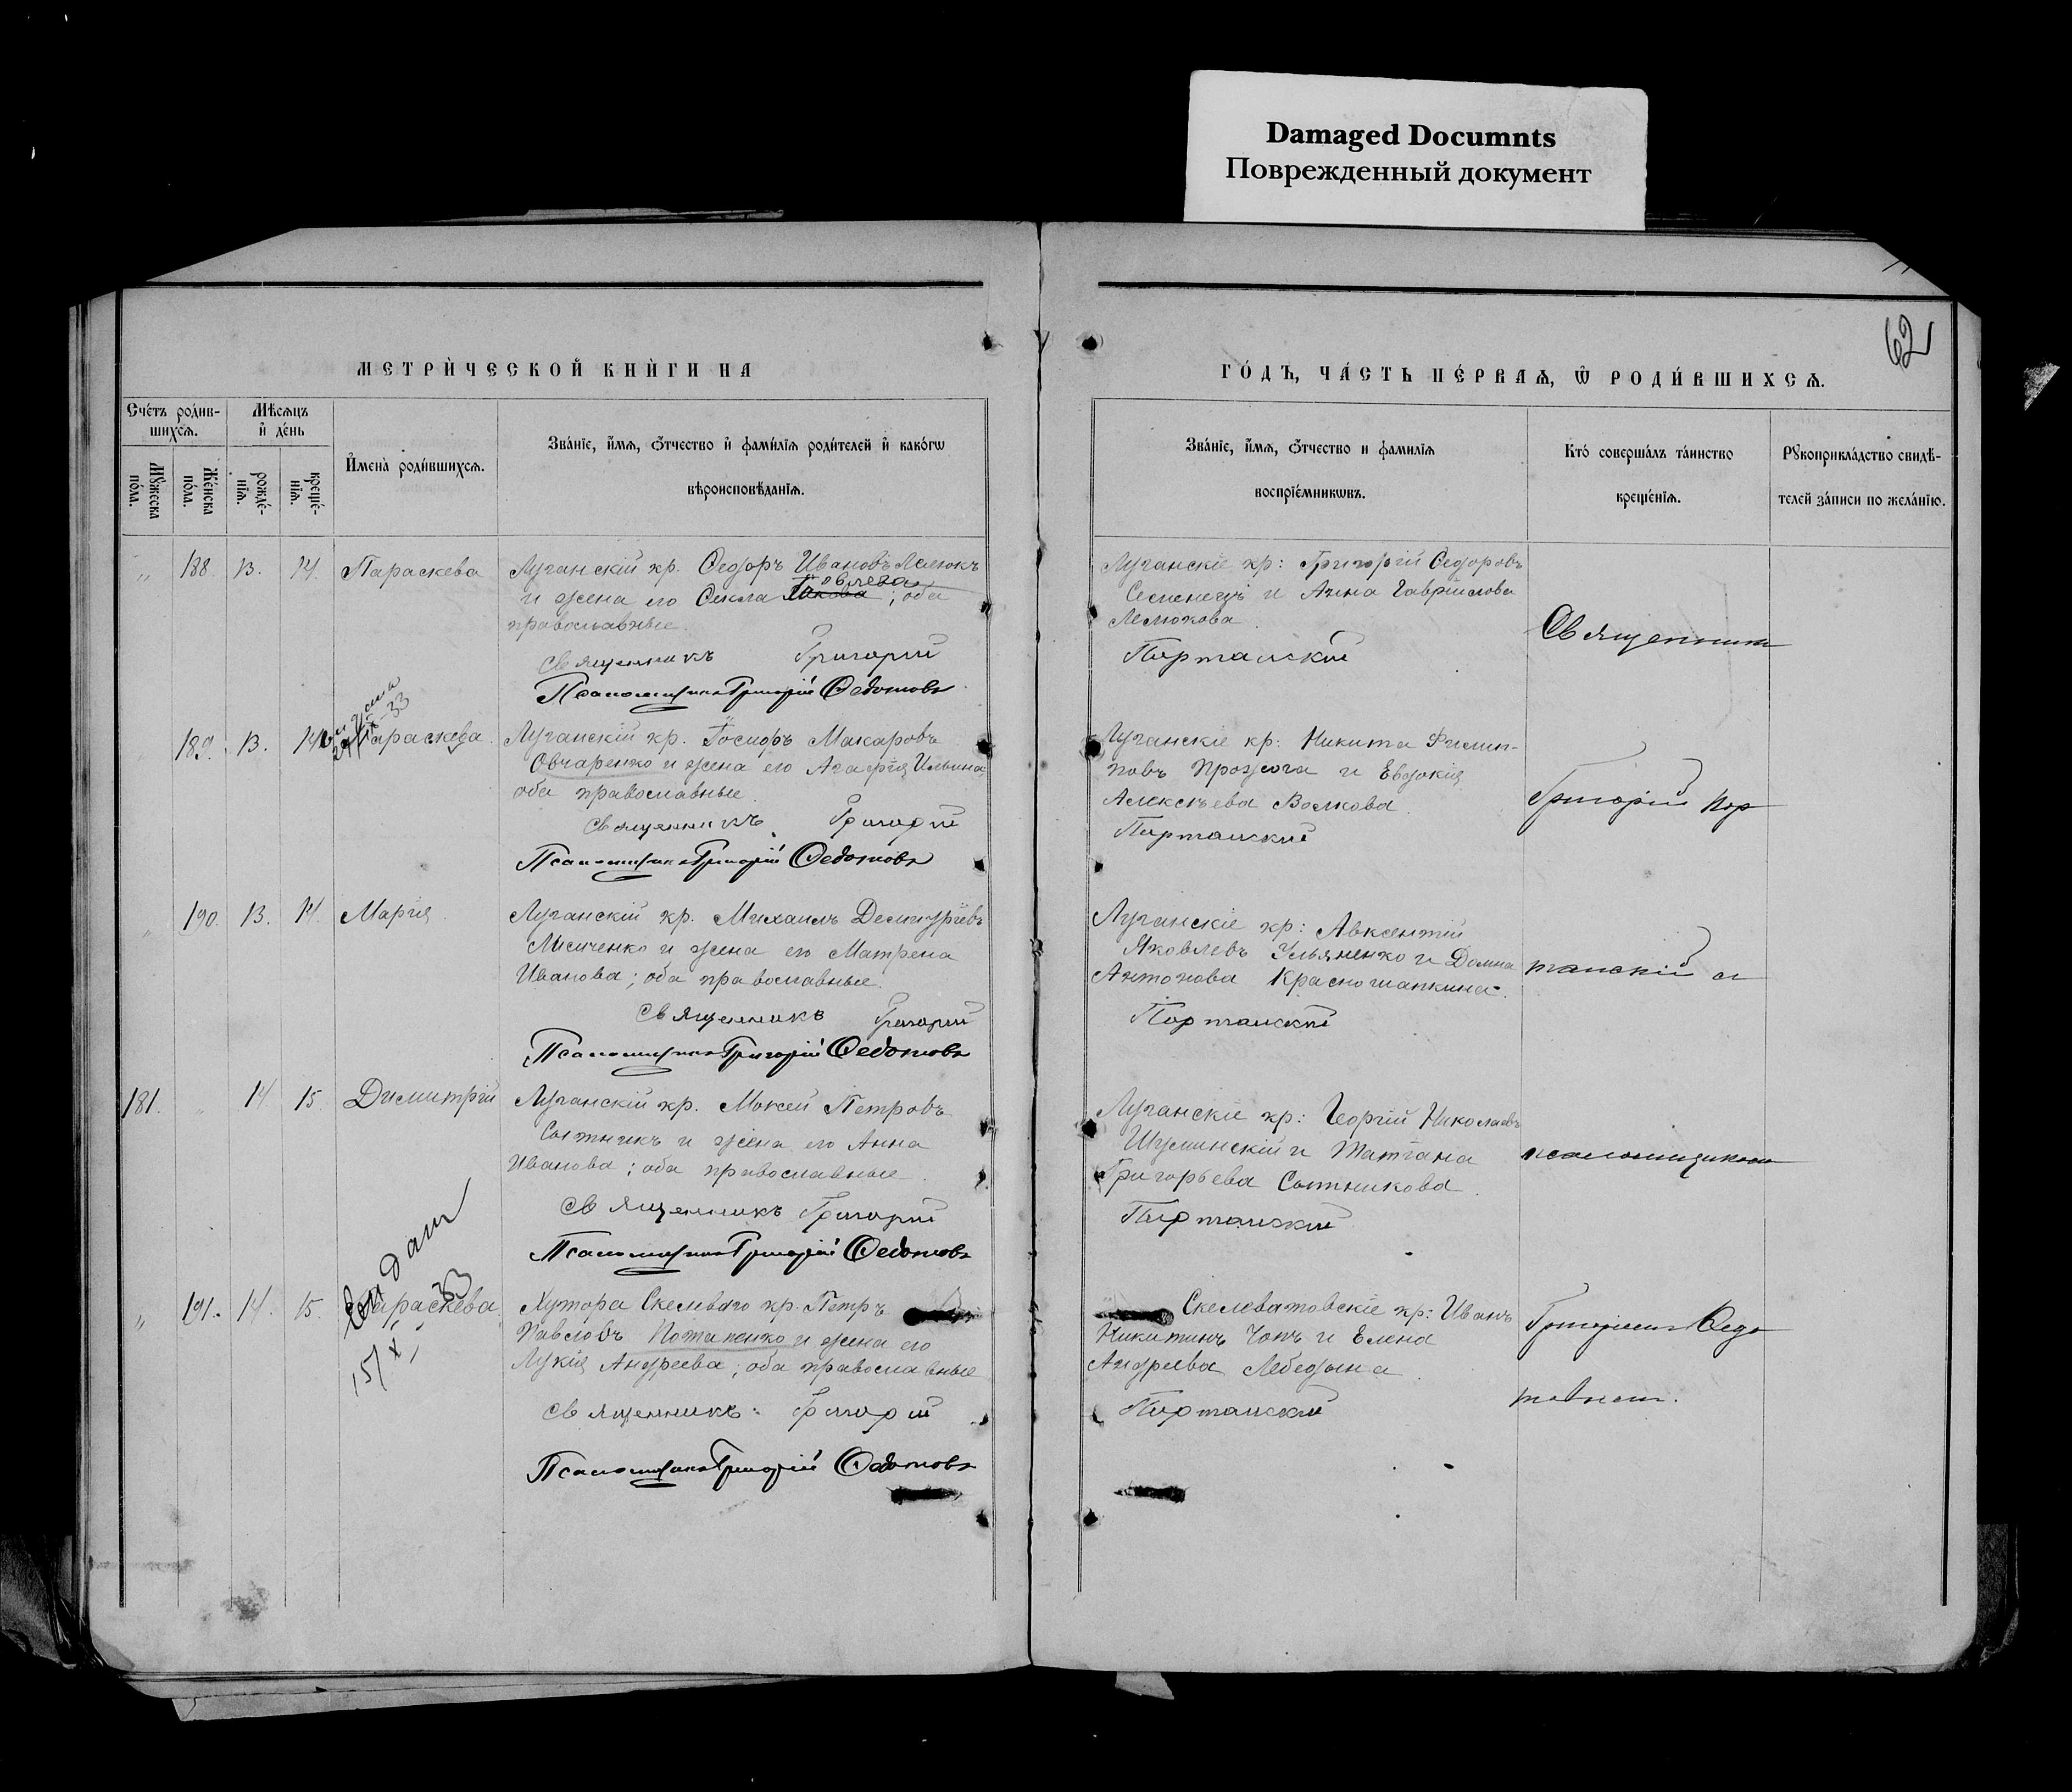 Damaged Documnts
Поврежденный документ
62
МЕТРИ́ЧЕСКОЙ КНИ́ГИ НА
ГО́ДЪ, ЧА́СТЬ ПЕ́РВАѦ, Ѿ РОДИ́ВШИХСѦ.
Сче́тъ роди́в-
шихсѧ.
Мѣ́сѧцъ
и҆ де́нь
Мꙋ́жеска
по́ла.
Же́нска
по́ла.
рожде́-
нїѧ.
креще́-
нїѧ.
И҆мена̀ роди́вшихсѧ.
Зва́нїе, и҆́мѧ, ѻ҆́тчество и҆ фами́лїѧ роди́телей и҆ како́гѡ
вѣроисповѣ́данїѧ.
Зва́нїе, и҆́мѧ, ѻ҆́тчество и фамилїѧ
воспрїе́мникѡвъ.
Кто́ соверша́лъ та́инство
креще́нїѧ.
Рꙋкоприкла́дство свидѣ́-
телей за́писи по жела́нїю.
" 188. 13. 14. Параскева
Луганскій кр. Ѳедоръ Ивановъ Лемюкъ
и жена его Ѳекла Яковлева; оба
православные.
Священникъ Григорий
Псаломщикъ Григорій Ѳедотовъ
Луганскіе кр: Григорій Ѳедоровъ
Семенецъ и Анна Гавріилова
Лемюкова
Порт
Священник
189. 13. 14. Параскева.
Луганскій кр. Макаровъ
Овчаренко и жена его Агафія Ильина;
оба православные.
Священникъ Григорий
Псаломщикъ Григорій Ѳедотовъ
Луганскіе кр: Никита Филип-
повъ и Евдокія
Алексѣева Волкова.
Григорій Пор
190. 13. 14. Марія
Луганскій кр. Михаилъ Димитріевъ
Лисиченко и жена его Матрена
Иванова; оба православные.
Священникъ Григорий
Псаломщикъ Григорій Ѳедотовъ
Луганскіе кр: Авксентій
Яковлевъ Ульяненко и Домна
Антонова Красношапкина.
танскій с
181. " 14 15 Димитрій
Луганскій кр. Мокей Петровъ
Сытникъ и жена его Анна
Иванова; оба православные.
Священникъ Григорий
Псаломщикъ Григорій Ѳедотовъ
Луганскіе кр: Георгій Николаевъ
Шуминскій и Татіана
Григорьева Сытникова.
псаломщикомъ
" 191. 14. 15. Параскева
15/X - 33
Хутора Скелеваго кр. Петръ
Павловъ Потапенко и жена его
Лукія Андреева; оба православные
Священникъ: Григорий
Псаломщикъ Григорій Ѳедотовъ
Скелеватовскіе кр: Иванъ
Никитинъ Чопъ и Елена
Андреева Лебедына.
Григориемъ Ѳедо
товым.